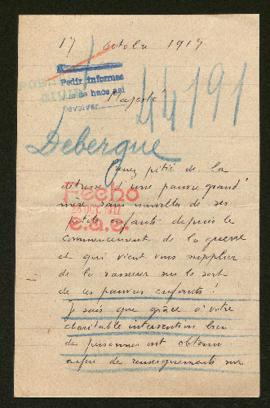 17 octobre 1917
Pedir informes
si se hace así
devolver
44191
Majesté
Debergue
Ayez pitié de la
détresse d'une pauvre grand'
mère sans nouvelles de ses
petits enfants depuis le
commencement de la guerre
et qui vient vous supplier
de la rassurer sur le sort
de ces pauvres enfants!
Hecho
C.a.C.
Je sais que grâce à votre
charitable intervention bien
des personnes ont obtenu
enfin des renseignements sur